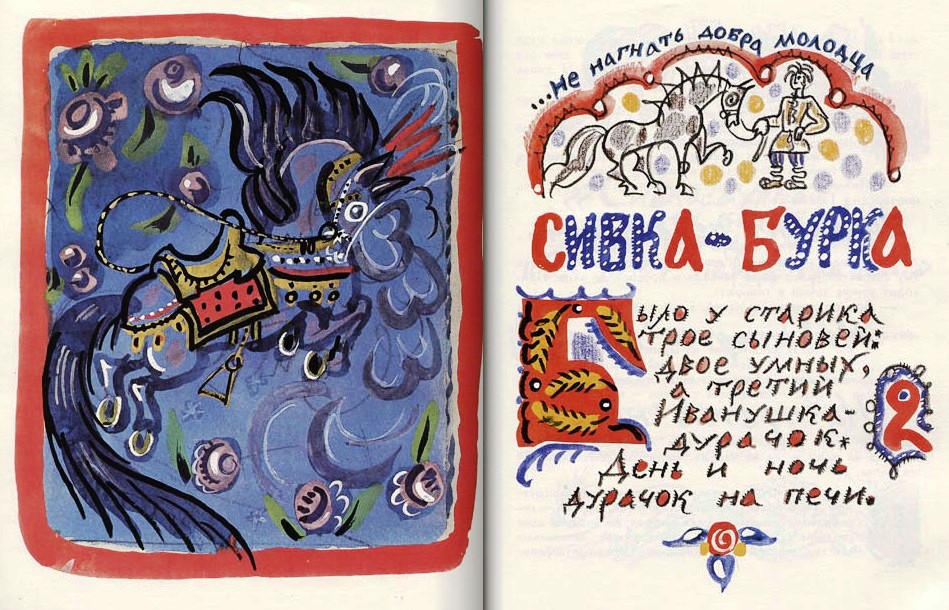 ...НЕ НАГНАТЬ ДОБРА МОЛОДЦА
СИВКА-БУРКА
Было у старика
трое сыновей:
двое умных,
а третий
Иванушка-
дурачок.
День и ночь
дурачок на печи.
2